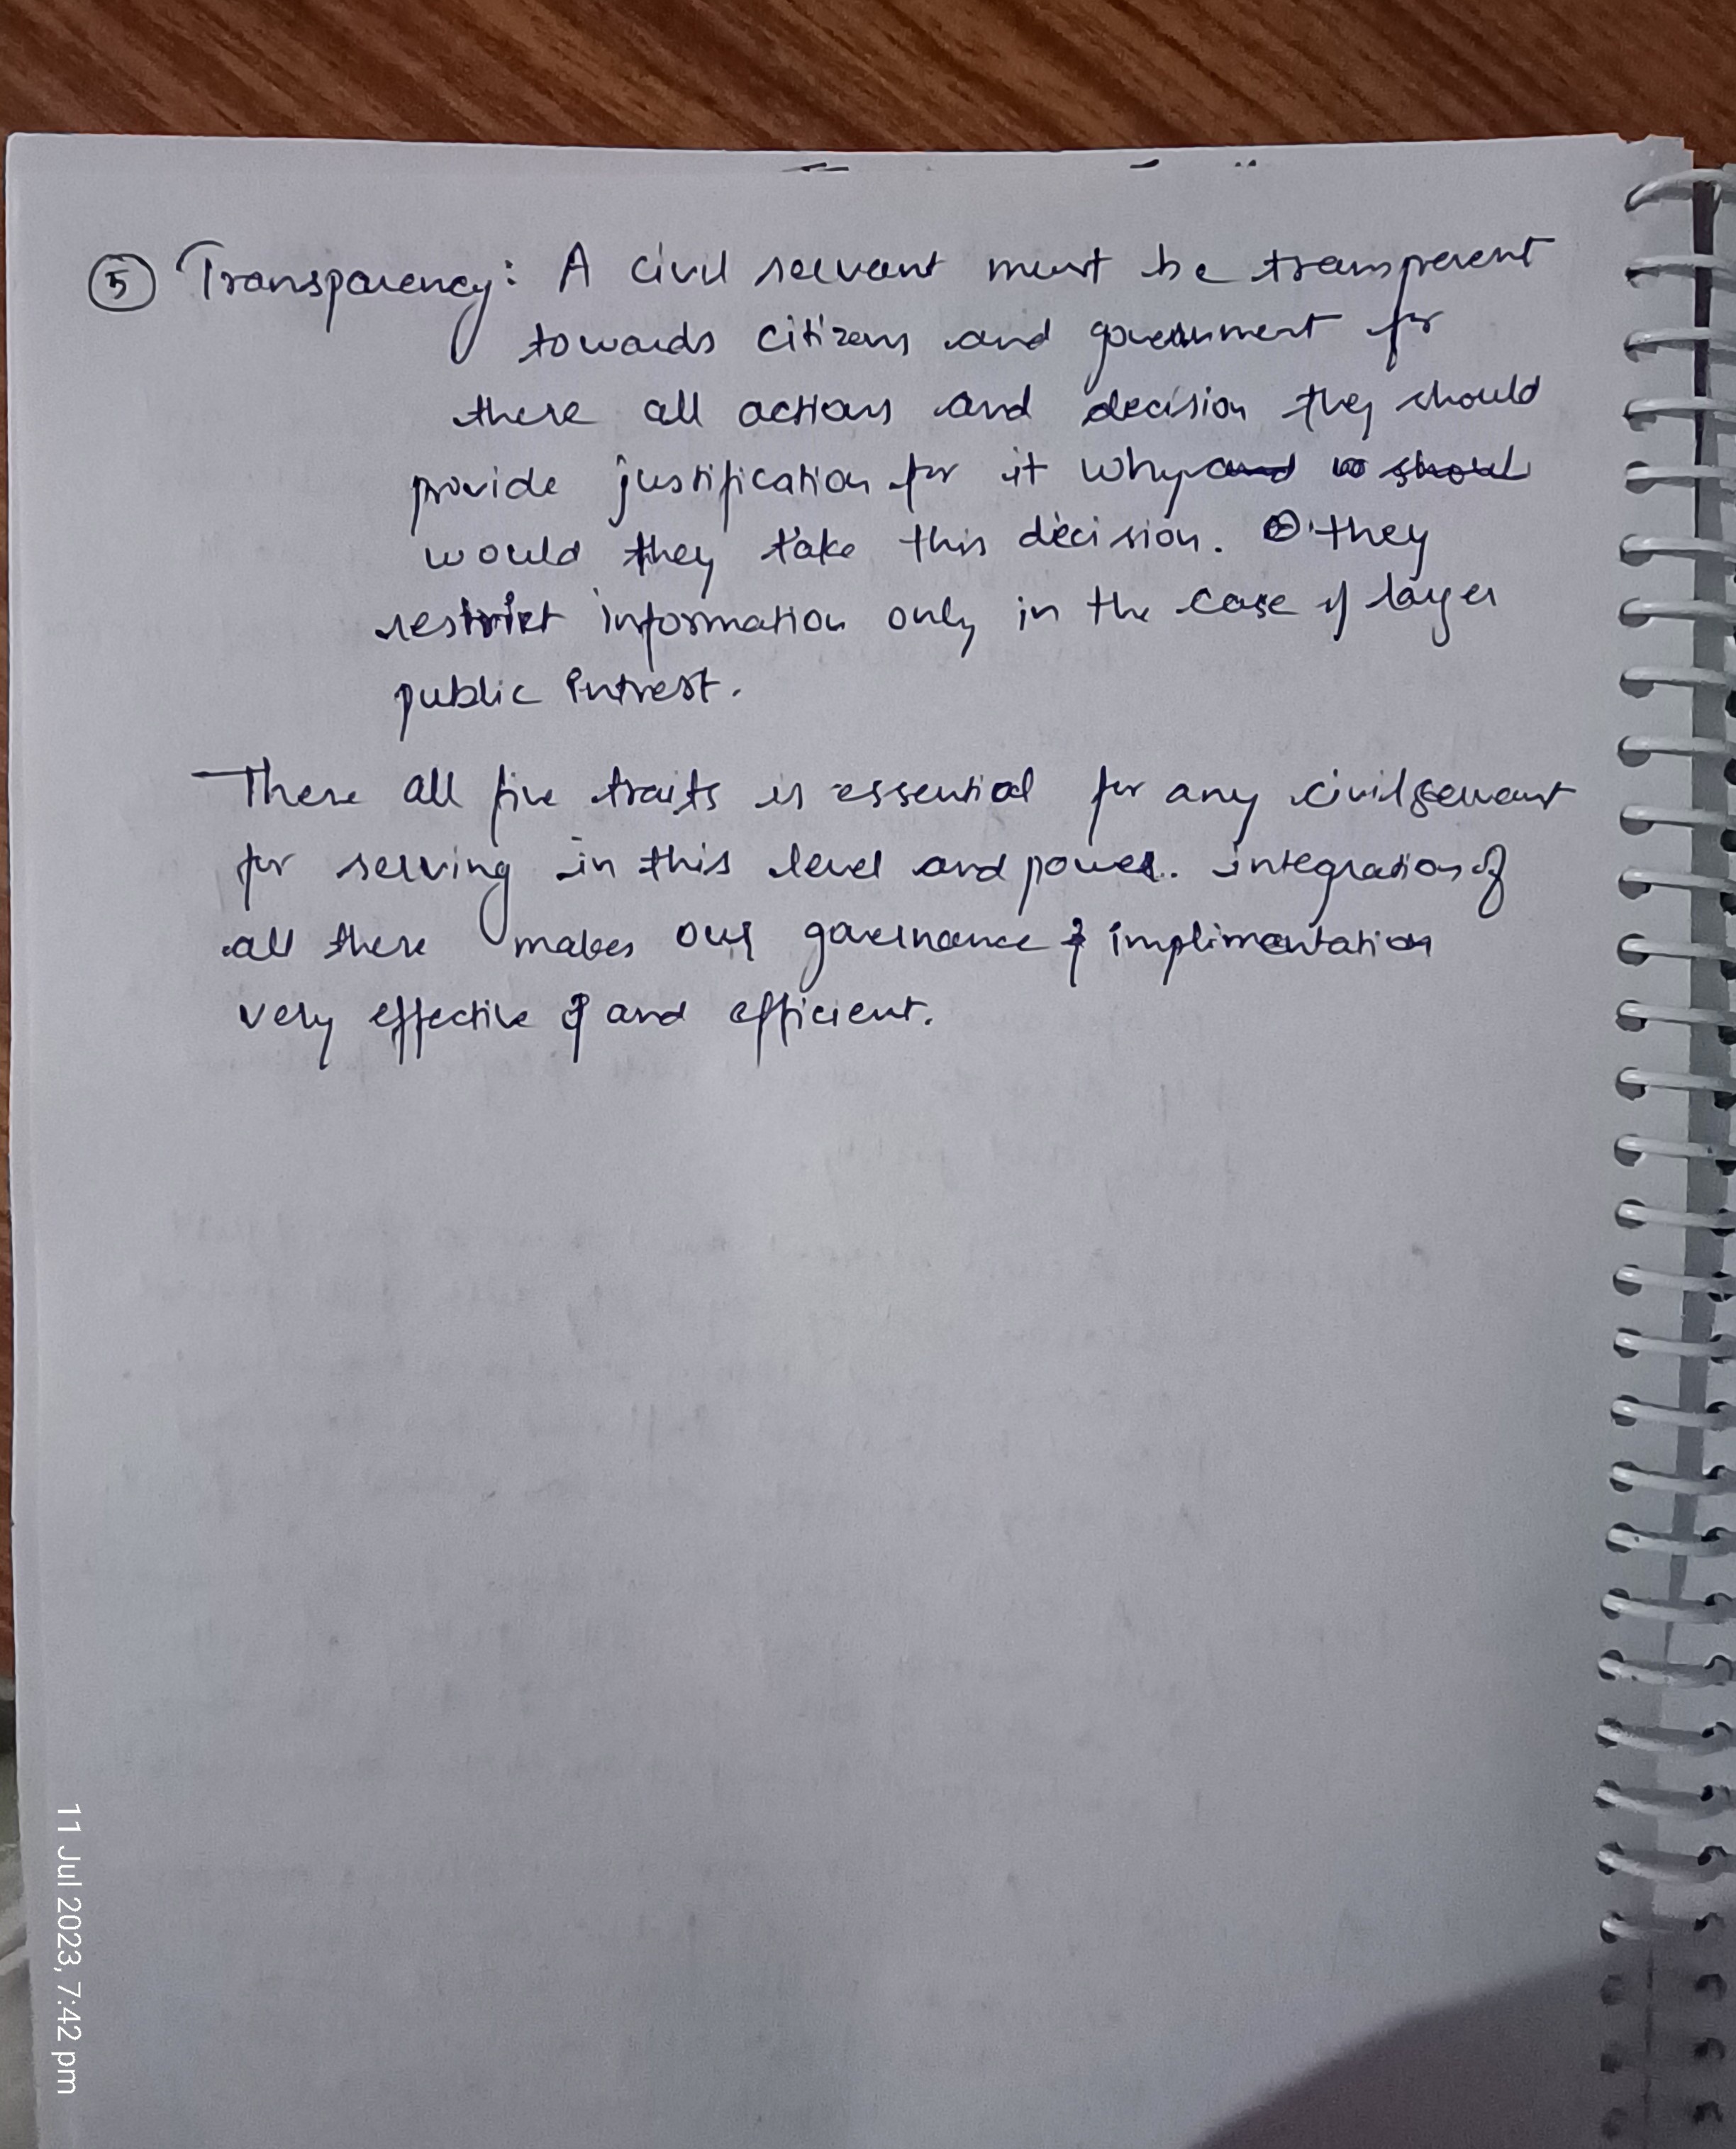 5 Transparency: A civil servant must be transperent
towards citizens and government for
these all actions and decision they should
provide justification for it why and w shoul
would they take this decision. they
restrict information only in the case of larger
public intrest.
These all five traits is essential for any civil servant
for serving in this level and power. integration of
all these makes our governance & implimentation
very effective & and efficient.
11 Jul 2023, 7:42 pm